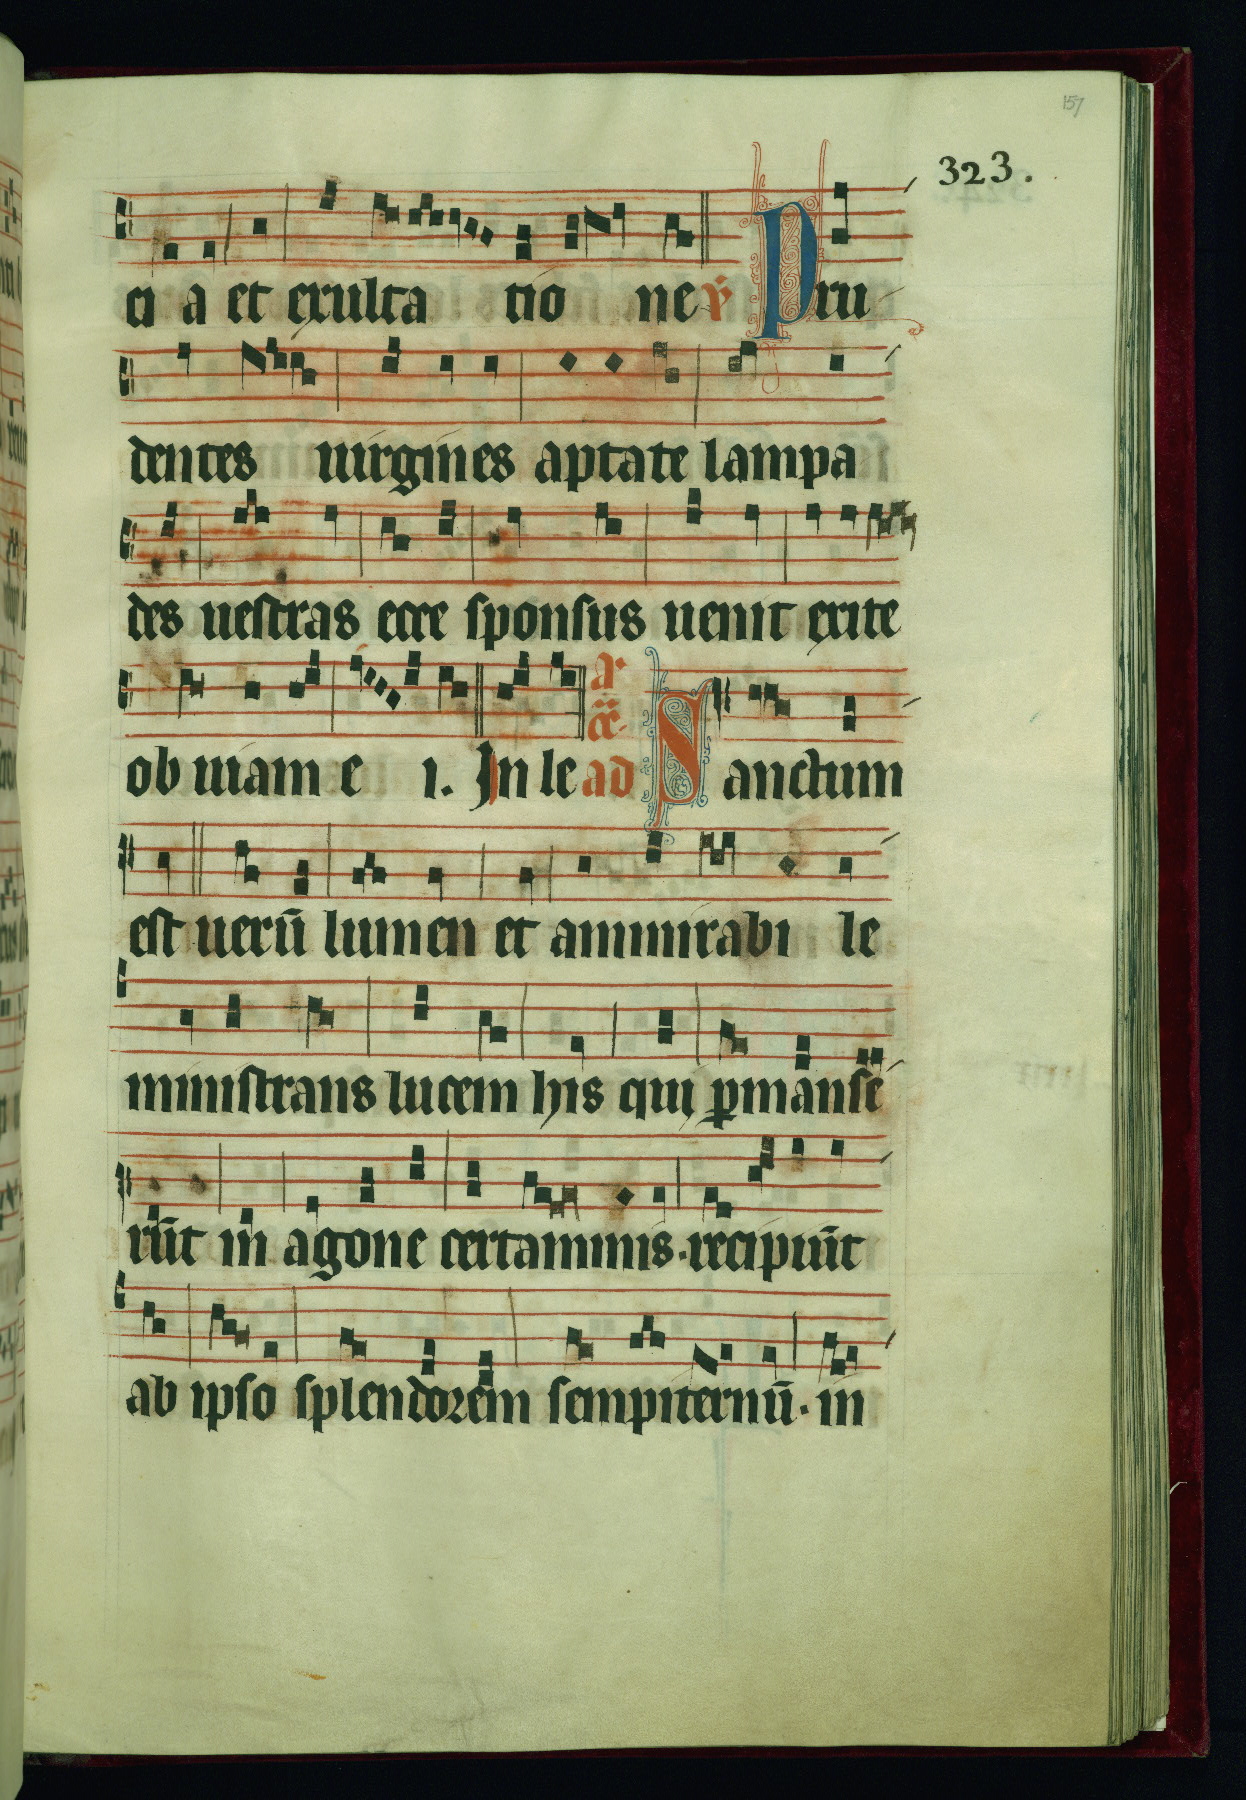 157
323.
ci a et exulta tio ne ℣ Pru
dentes uirgines aptate lampa
des uestras ecce sponsus uenit exite
ob uiam e i. In le ad Sanctum
est uerū lumen et ammirabi le
ministrans lucem his qui ꝑmanse
rūt in agone certaminis · recipiūt
ab ipso splendorem sempiternū · in